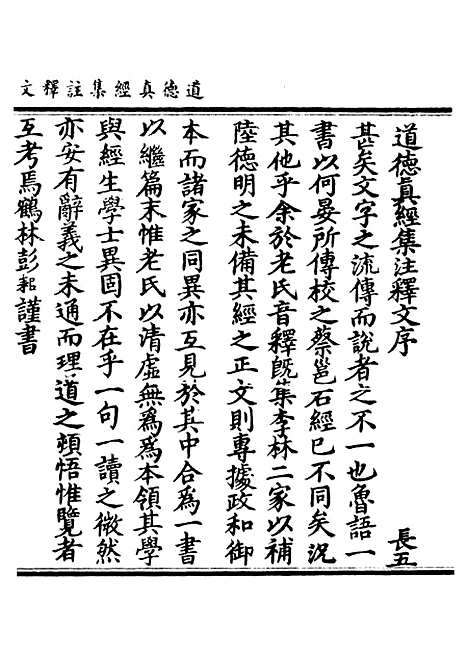 道德真經集註釋文
道德真經集注釋文序
長五
甚矣文字之流傳而說者之不一也魯語一
書以何晏所傳校之蔡邕石經已不同矣況
其他乎余於老氏音釋旣集李林二家以補
陸德明之未備其經之正文則專據政和御
本而諸家之同異亦互見於其中合為一書
以繼篇末惟老氏以清虛無為為本領其學
與經生學士異固不在乎一句一讀之微然
亦安有辭義之未通而理道之頓悟惟覽者
互考焉鶴林彭耜謹書